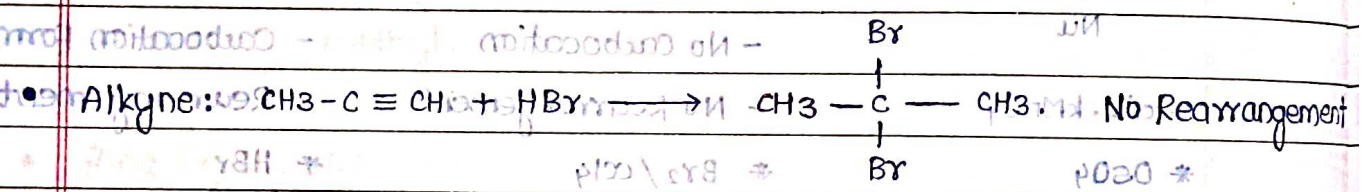 Br
• Alkyne: CH3-C ≡ CH + HBr ⟶ CH3 — C — CH3. No Rearrangement
Br